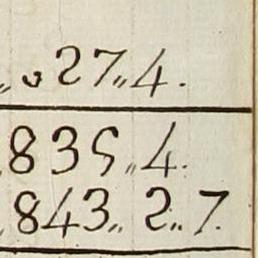 „ 027„4.
835„4.
843„2„7.